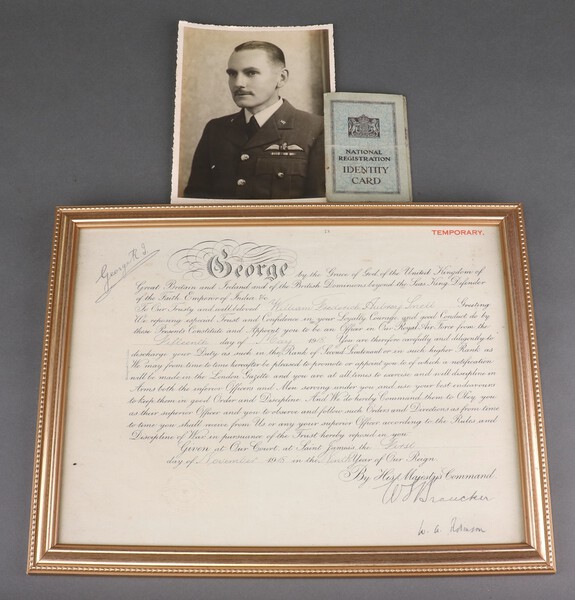 NATIONAL
REGISTRATION
IDENTITY
CARD
TEMPORARY.
George R.I.
George by the Grace of God of the United Kingdom of
Great Britain and Ireland and of the British Dominions beyond the Seas King Defender
of the Faith Emperor of India &c.
To Our Trusty and well beloved William Greeting
We reposing especial Trust and Confidence in your Loyalty Courage and good Conduct do by
these Presents Constitute and Appoint you to be an Officer in Our Royal Air Force from the
day of You are therefore carefully and diligently to
discharge your Duty as such in the Rank of Second Lieutenant or in such higher Rank as
We may from time to time hereafter be pleased to promote or appoint you to of which a notification
will be made in the London Gazette and you are at all times to exercise and well discipline in
Arms both the inferior Officers and Men serving under you and use your best endeavours
to keep them in good Order and Discipline. And We do hereby Command them to Obey you
as their superior Officer and you to observe and follow such Orders and Directions as from time
to time you shall receive from Us or any your superior Officer according to the Rules and
Discipline of War in pursuance of the Trust hereby reposed in you.
Given at Our Court at Saint James's the First
day of November 19 in the Ninth Year of Our Reign.
By His Majesty's Command